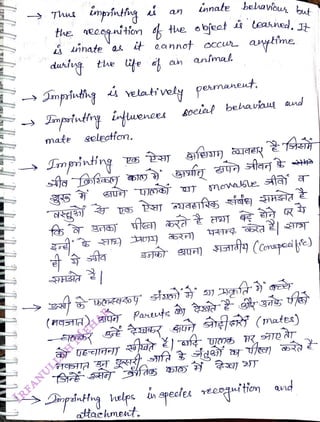 → Thus imprinting is an innate behaviour but
the recognition of the object is learned. It
is innate as it cannot occur anytime
during the life of an animal.
→ Imprinting is relatively permanent.
→ Imprinting influences social behaviour and
mate selection.
→ Imprinting एक ऐसा अधिगम व्यवहार है जिसमें
जीव क्रिटिकल काल में अर्थात् अपने जीवन के
शुरू में अपने पालकों या movable जीवों व
वस्तुओं से एक ऐसा व्यवहारिक संबंध समझते हैं
कि वे उनका पीछा करते हैं तथा बड़े होने पर ये
इन्हीं के साथ प्रणय करना पसन्द करते हैं। साथ
ही ये जीव उनको अपना सजातीय (Conspecific)
समझते हैं।
→ इसी के फलस्वरूप जंगलों में या प्रकृति में बच्चे
(नवजात) अपने Parents को देखते हैं और उनके पीछे
चलकर उन्हें देखकर अपने जोड़ीदारों (mates)
को पहचानना सीखते हैं। यदि पालक मर जाए तो
नवजात दूसरी जाति के जंतुओं का पीछा करते हैं
जिन्हें उसने क्रांतिक काल में देखा था
→ Imprinting helps in species recognition and
attachment.